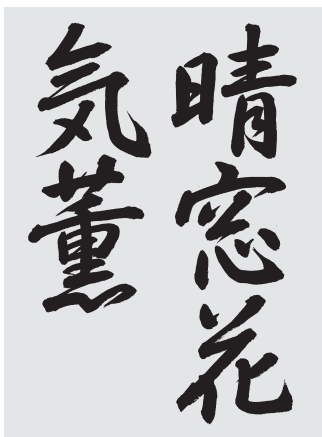 晴窓花
気薫